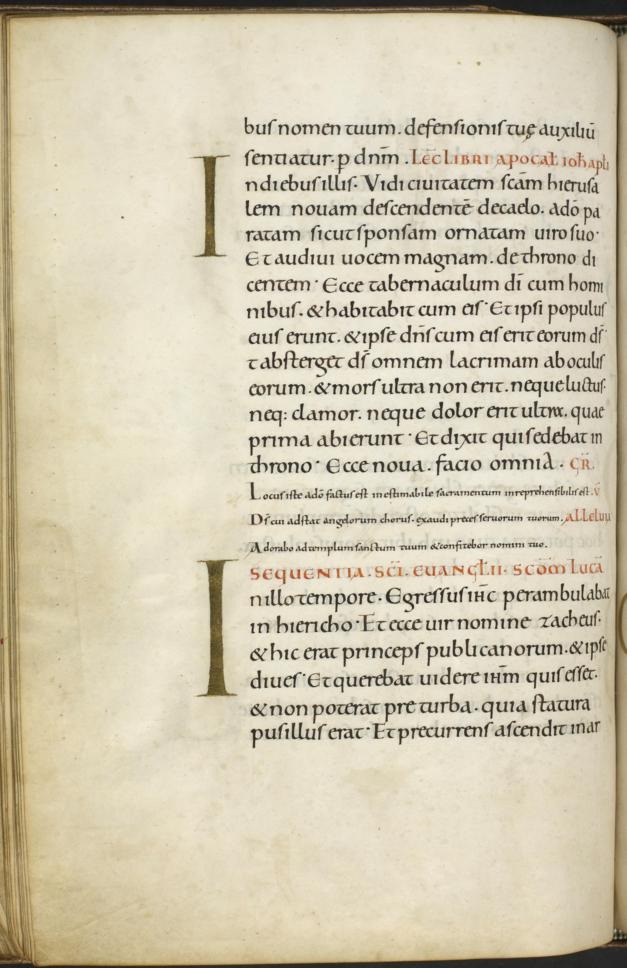 bus nomen tuum. defensionis tuę auxiliū
sentiatur. p dnm̄. Lec̄ LIBRI APOCAL̄ Ioh̄ apłi
In diebus illis. Vidi ciuitatem sc̄am hierusa
lem nouam descendentē decaelo. adō pa
ratam sicut sponsam ornatam uiro suo.
Et audiui uocem magnam. de throno di
centem. Ecce tabernaculum dī cum homi
nibus. & habitabit cum eis. Et ipsi populus
eius erunt. & ipse dn̄s cum eis erit eorum ds̄.
t absterget ds̄ omnem lacrimam ab oculis
eorum. & mors ultra non erit. neque luctus.
neq: clamor. neque dolor erit ultra. quae
prima abierunt. Et dixit qui sedebat in
throno. Ecce noua. facio omnia. GR̄.
Locus iste adō factus est inestimabile sacramentum inreprehensibilis est. v̄
Ds̄ cui adstat angelorum chorus. exaudi preces seruorum tuorum. ALLELUU
Adorabo ad templum sanctum tuum & confitebor nomini tuo.
SEQUENTIA. SC̄I. EUANGL̄II. SCD̄M LUCĀ
In illo tempore. Egressus ih̄c perambulabat
in hiericho. Et ecce uir nomine zacheus.
& hic erat princeps publicanorum. & ipse
diues. Et querebat uidere ih̄m quis esset.
& non poterat pre turba. quia statura
pusillus erat. Et precurrens ascendit in ar